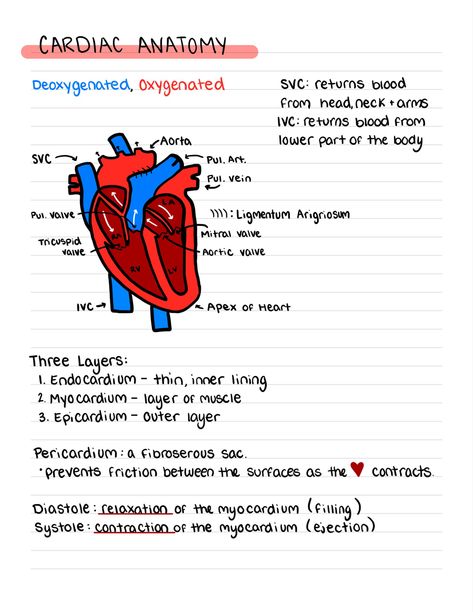 CARDIAC ANATOMY
Deoxygenated, Oxygenated
SVC: returns blood
from head, neck + arms
IVC: returns blood from
lower part of the body
Aorta
SVC
Pul. Art.
Pul. vein
Pul. valve
)))) : Ligmentum Arigriosum
Mitral valve
Tricuspid
valve
Aortic valve
LA
RV
LV
IVC
Apex of Heart
Three Layers:
1. Endocardium - thin, inner lining
2. Myocardium - layer of muscle
3. Epicardium - outer layer
Pericardium: a fibroserous sac.
•prevents friction between the surfaces as the ♥ contracts.
Diastole: relaxation of the myocardium (filling)
Systole: contraction of the myocardium (ejection)